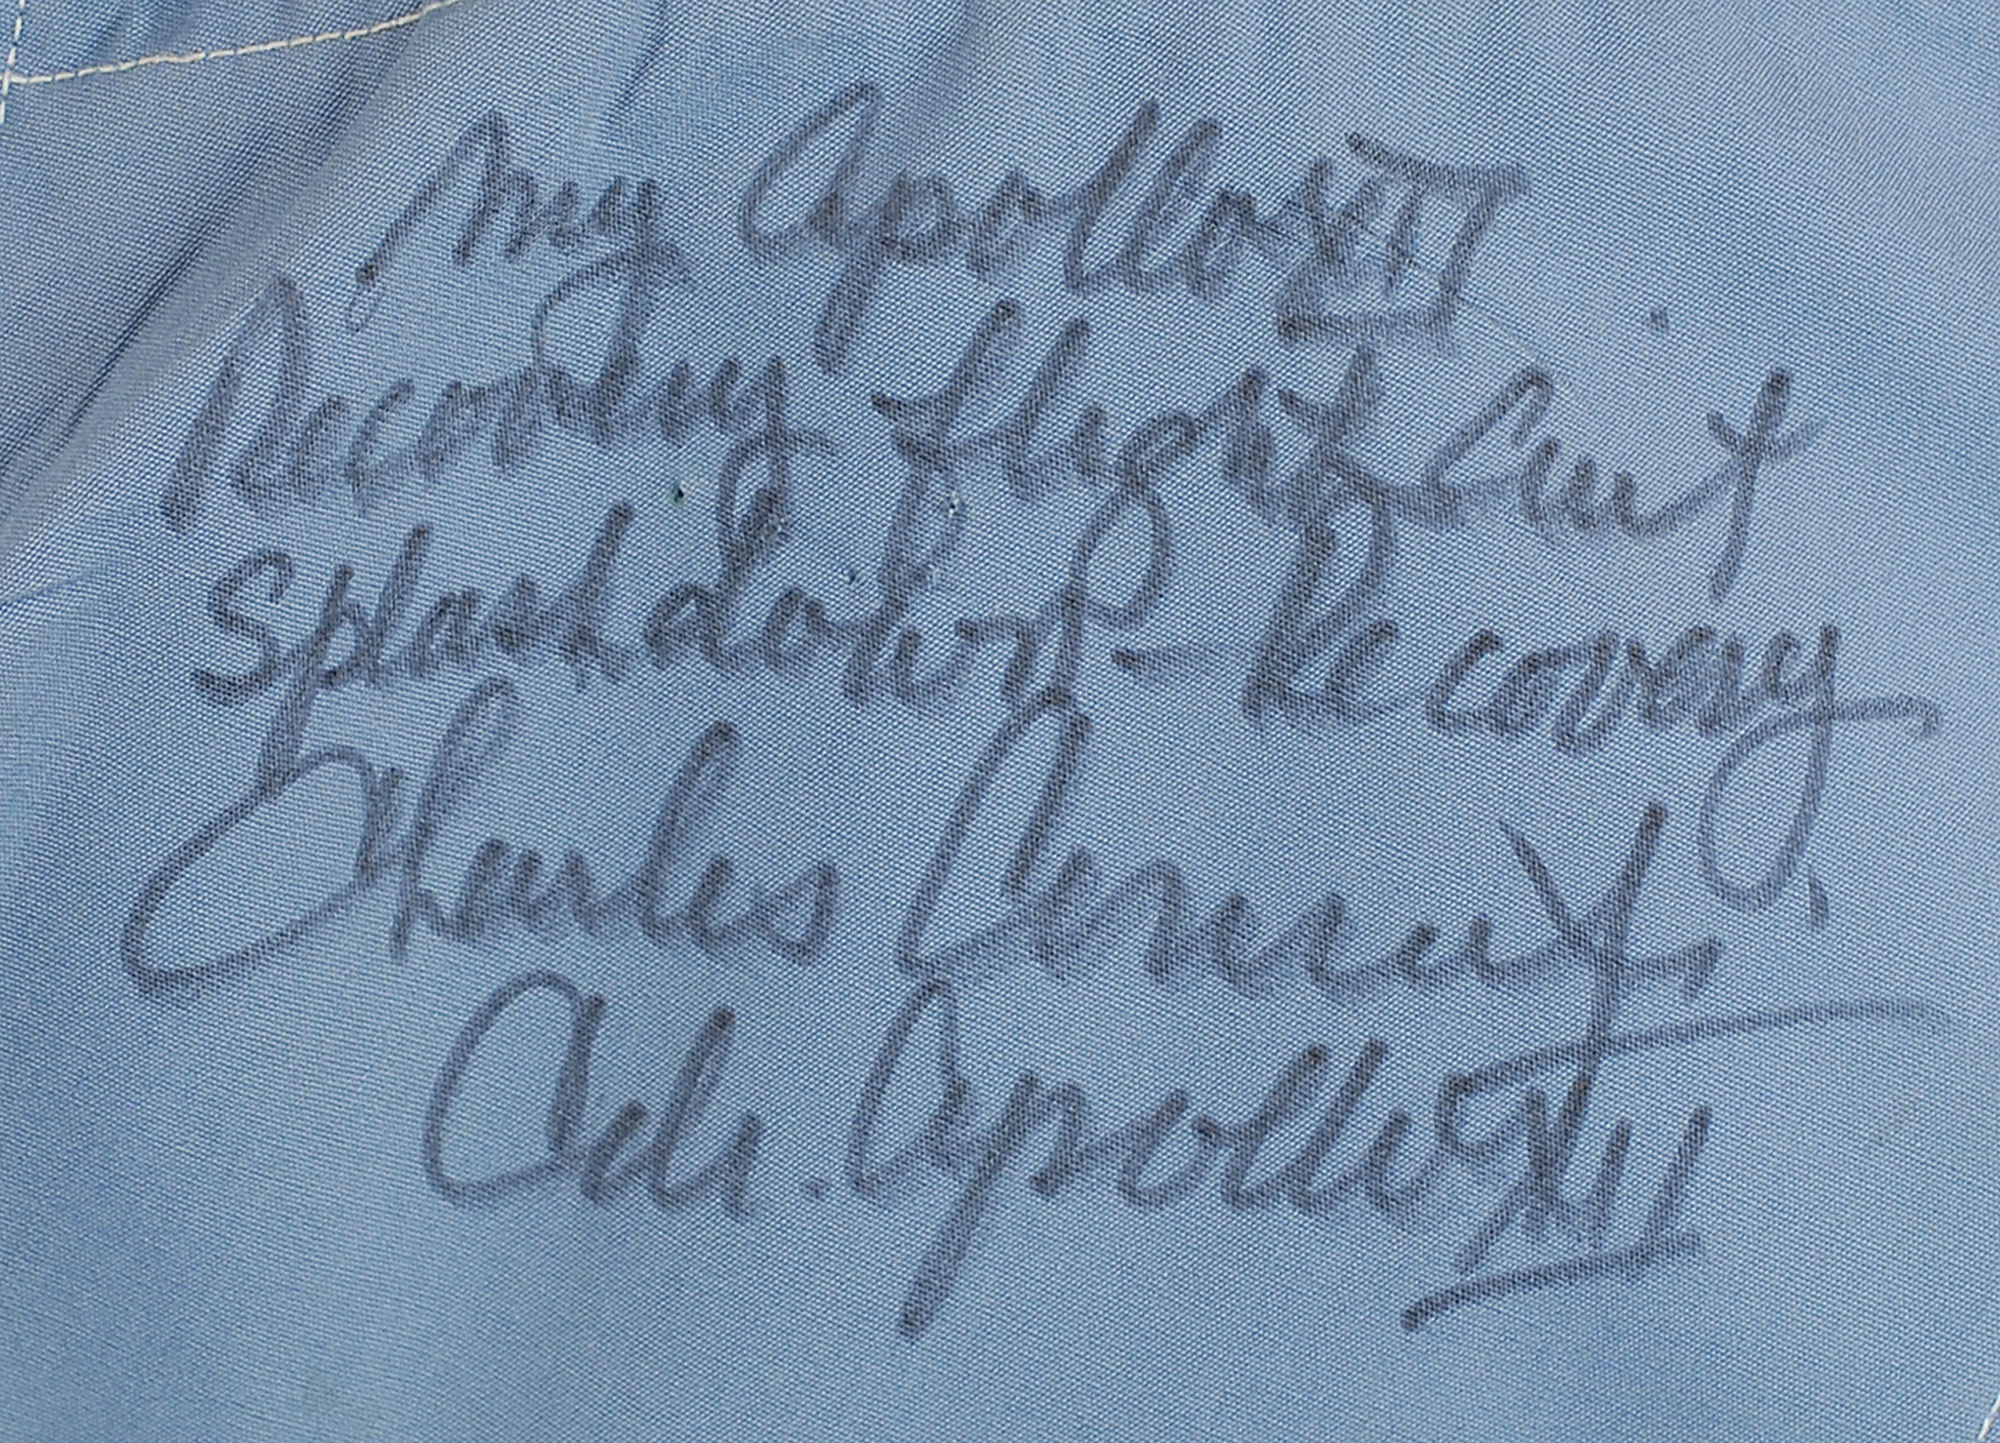 My Apollo XII
Recovery flight suit
Splashdown - Recovery
Charles Conrad, Jr.
Cdr. Apollo XII